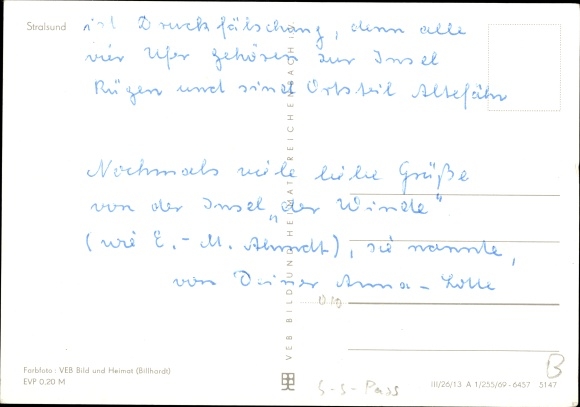 Stralsund ist Druckfälschung, denn alle
vier Ufer gehören zur Insel
Rügen und sind Ortsteil Altefähr
Nochmals viele liebe Grüße
von der Insel „der Winde"
(wie E. - M. Arndt), sie nannte,
von Deiner Anna-Lotte
VEB BILD UND HEIMAT REICHENBACH i
Farbfoto: VEB Bild und Heimat (Billhardt)
EVP 0,20 M
S-S-Pass
III/26/13 A 1/255/69-6457 5147
B